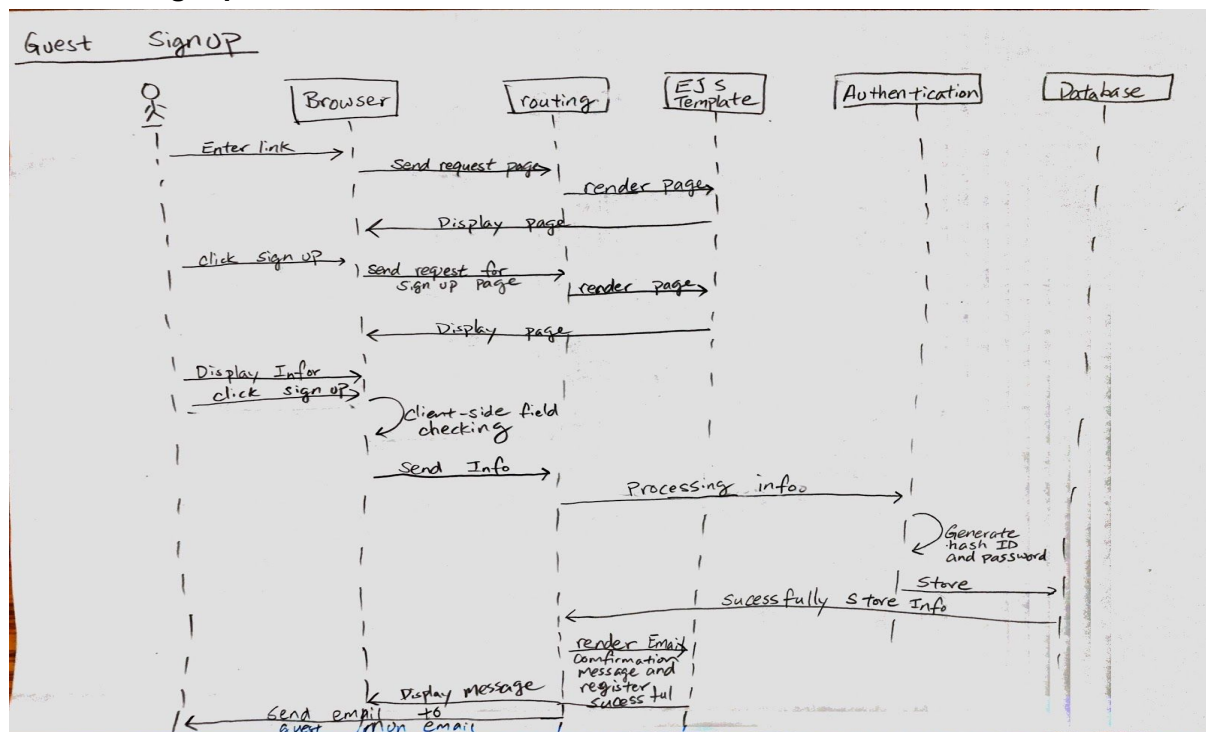 Guest SignUP
Browser
routing
EJS
Template
Authentication
Database
Enter link
Send request page
render page
Display page
click sign up
send request for
sign up page
render page
Display page
Display Infor
click sign up
Client-side field
checking
Send Info
Processing info
Generate
hash ID
and password
Store
Sucessfully Store Info
render Email
Comfirmation
message and
register
sucessful
Display message
Send email to
guest email